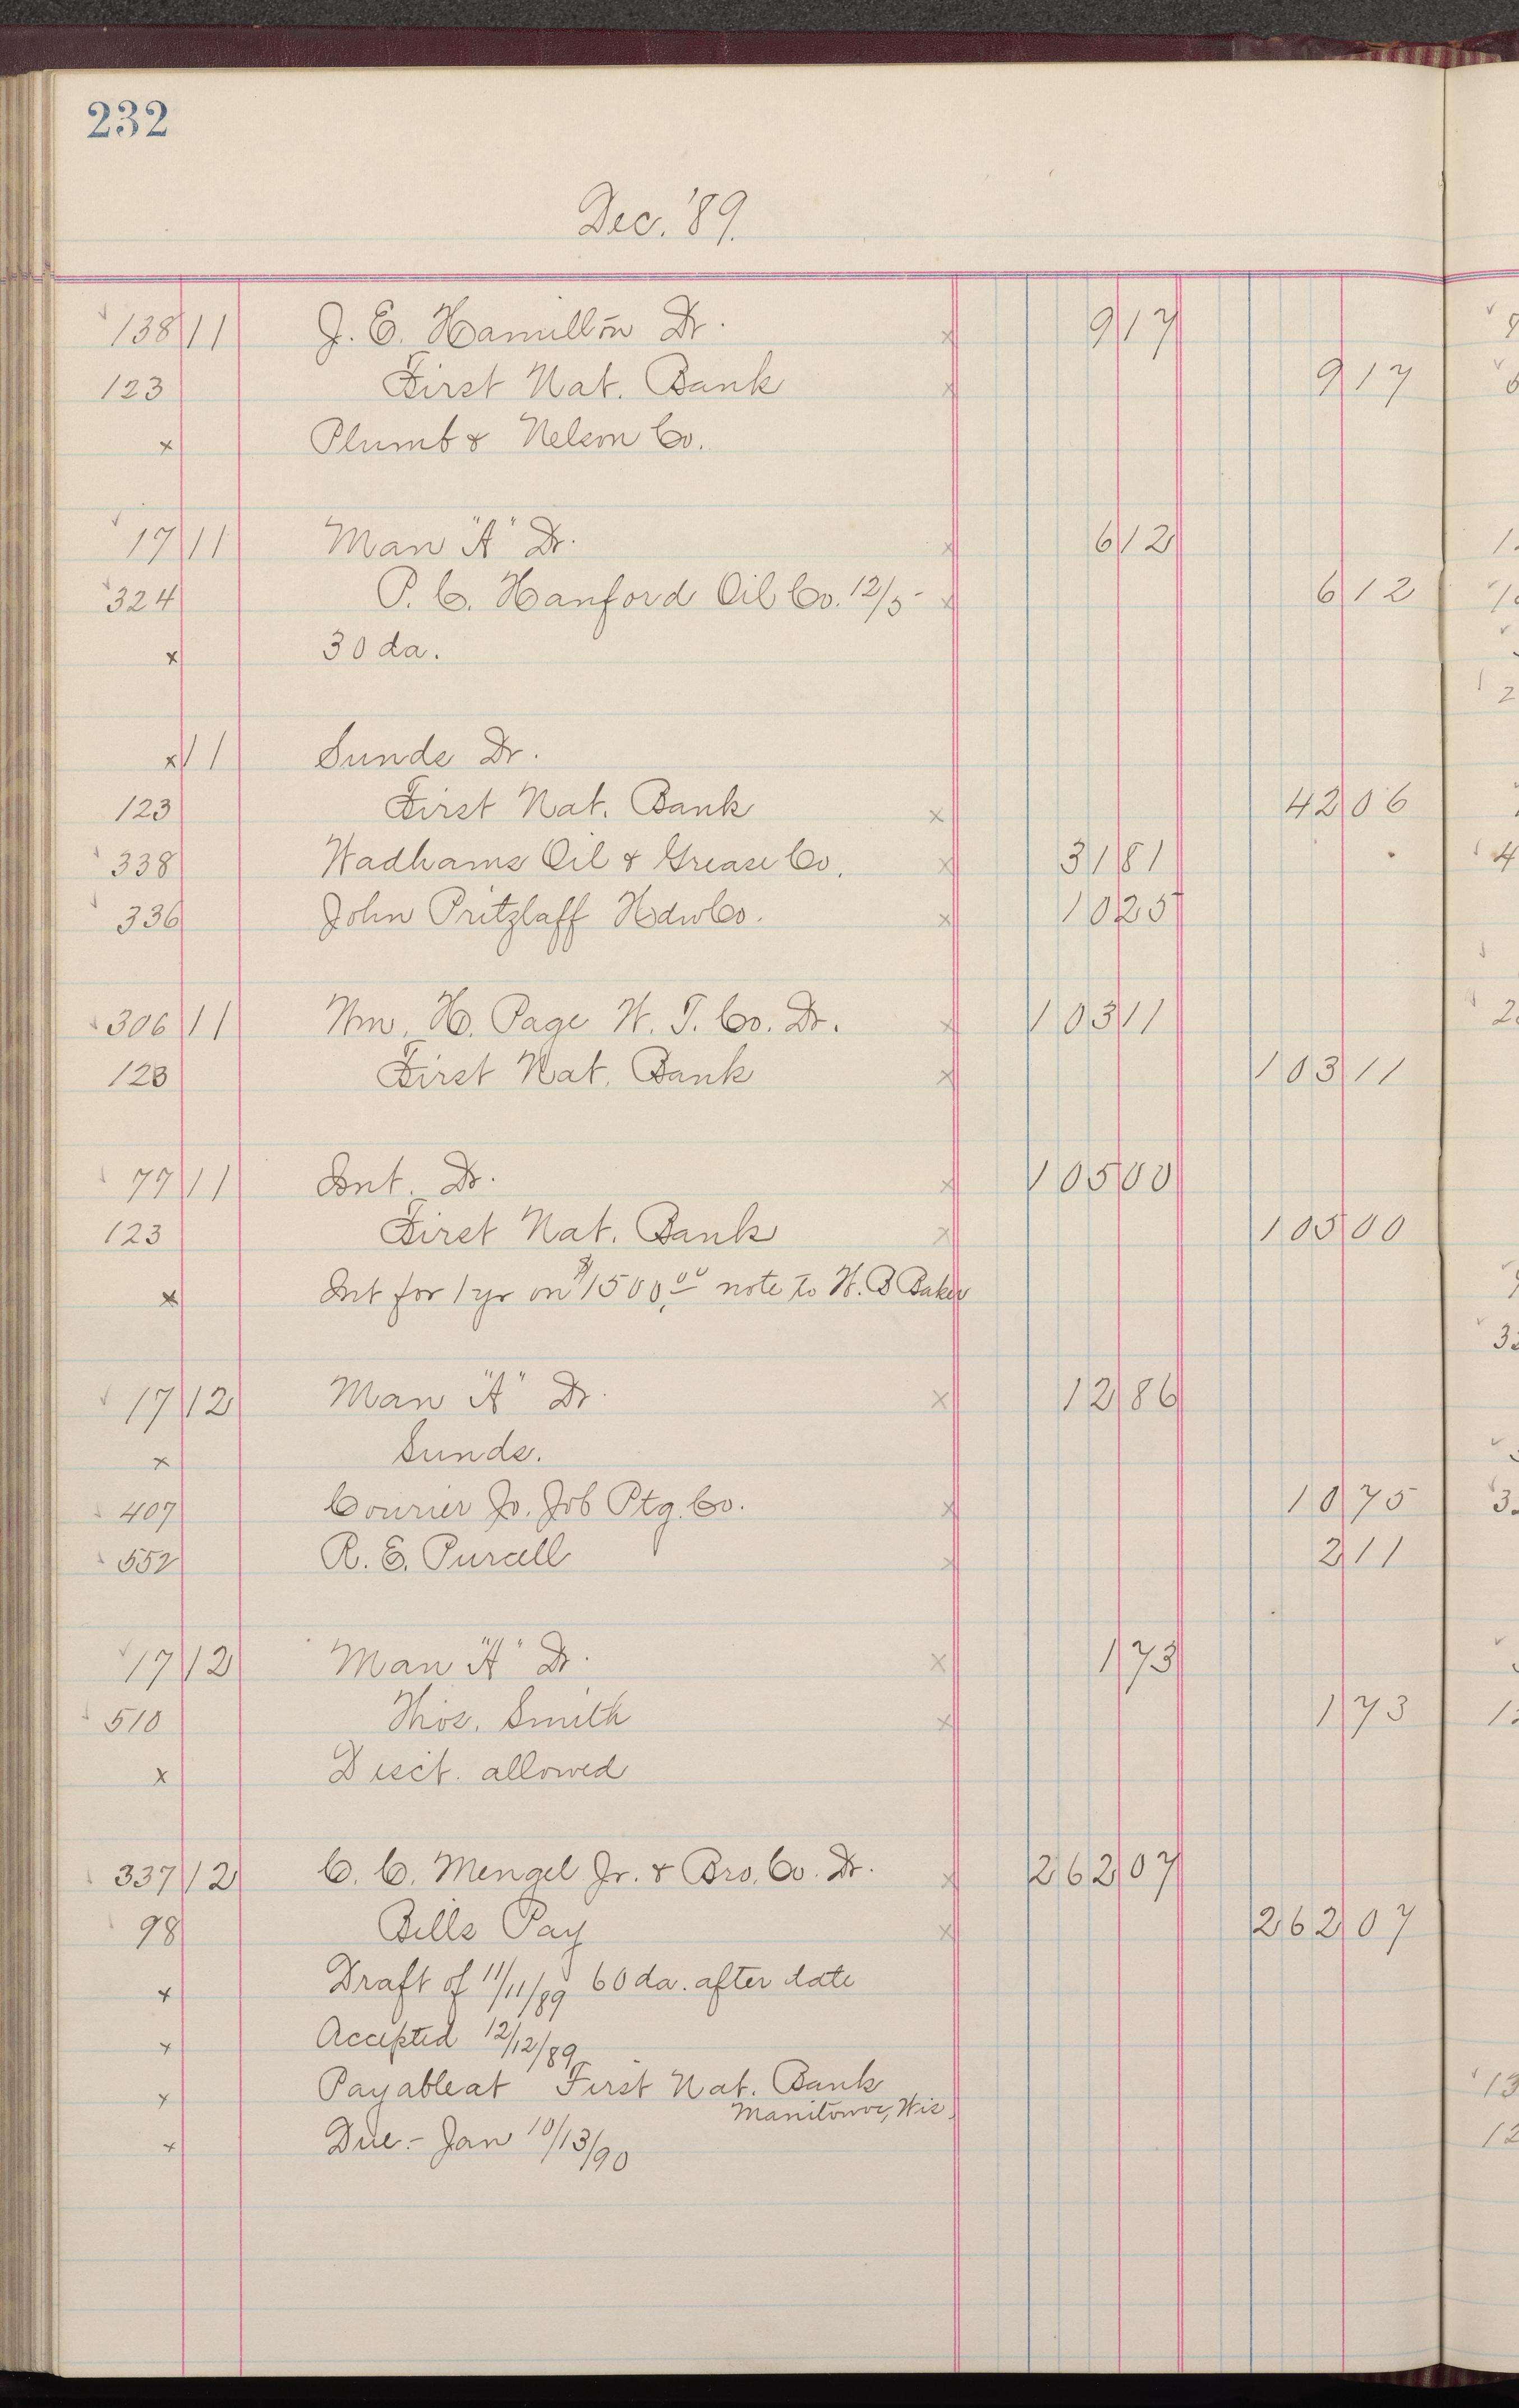 232
Dec. '89.
138 11 J. E. Hamilton Dr. x 9 17
123 First Nat. Bank x 9 17
x Plumb & Nelson Co.
17 11 Man "A" Dr. x 6 12
324 P. C. Hanford Oil Co. 12/5 - x 6 12
x 30 da.
x 11 Sunds Dr.
123 First Nat. Bank x 42 06
338 Wadhams Oil & Grease Co. x 31 81
336 John Pritzlaff Hdw Co. x 10 25
306 11 Wm. H. Page W. T. Co. Dr. x 103 11
123 First Nat. Bank x 103 11
77 11 Int. Dr. x 105 00
123 First Nat. Bank x 105 00
x Int for 1 yr on $1500,00 note to W. B Baker
17 12 Man "A" Dr. x 12 86
x Sunds.
407 Courier Jo. Job Ptg. Co. x 10 75
552 R. E. Purcell x 2 11
17 12 Man "A" Dr. x 1 73
510 Thos. Smith x 1 73
x Disct. allowed
337 12 C. C. Mengel Jr. & Bro. Co. Dr. x 262 07
98 Bills Pay x 262 07
x Draft of 11/11/89 60 da. after date
x Accepted 12/12/89
x Payable at First Nat. Bank
Manitowoc, Wis.
x Due.- Jan 10/13/90